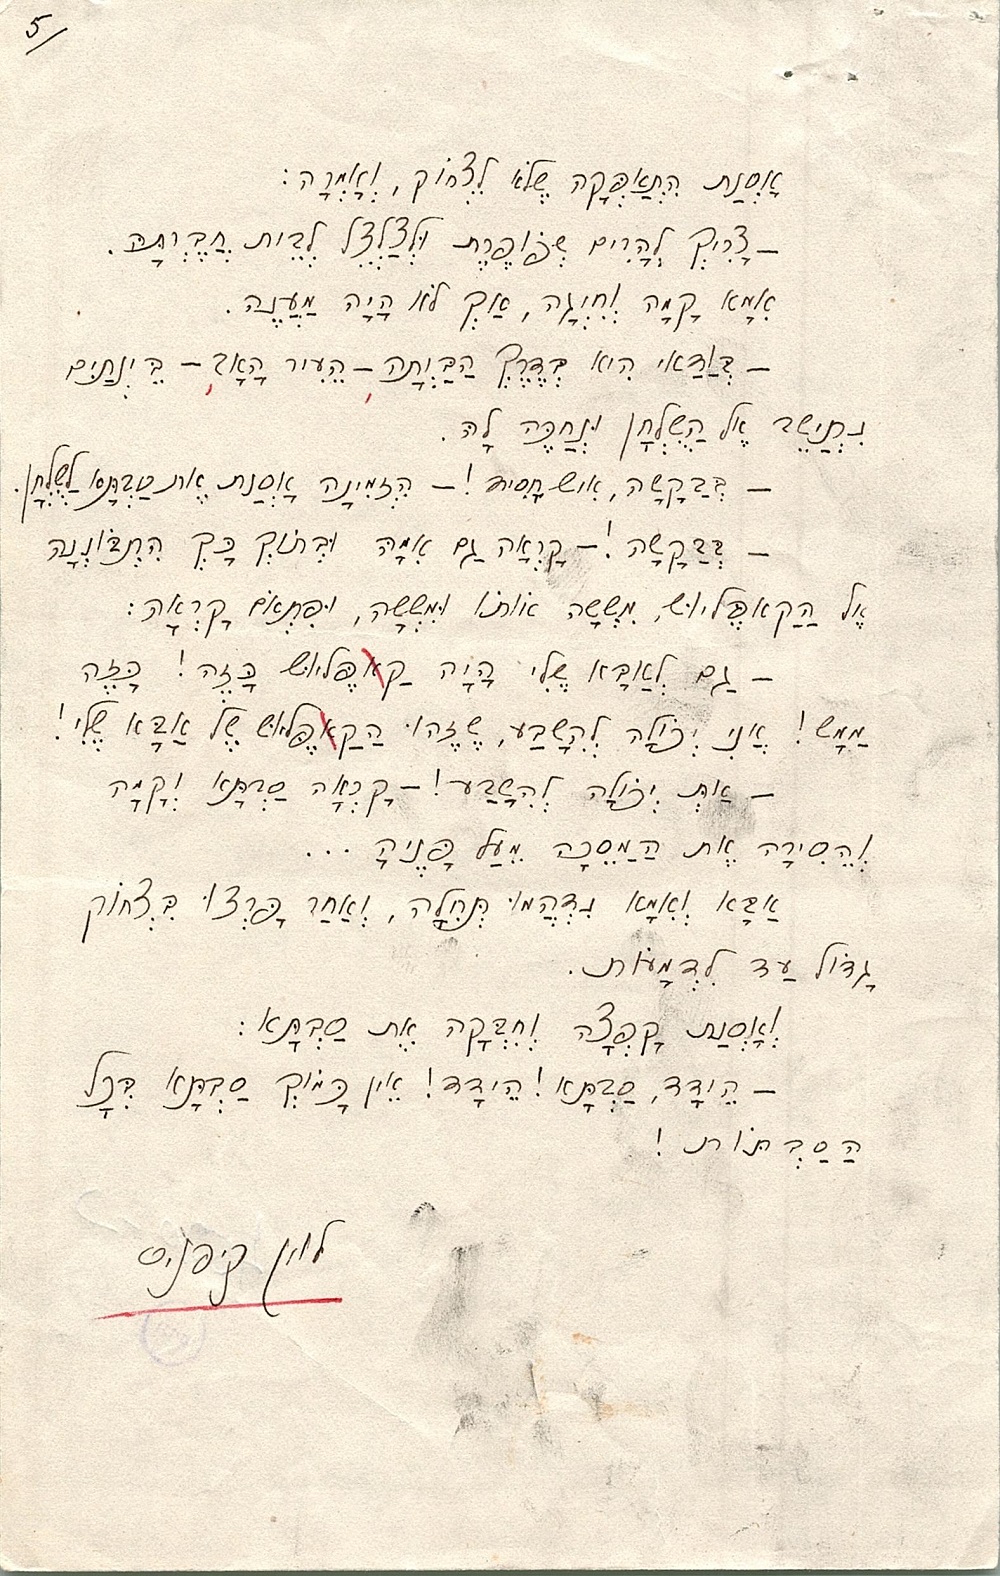 5/
אָסְנַת הִתְאַפְּקָה שֶׁלֹּא לִצְחוֹק, וְאָמְרָה:
– צָרִיךְ לְהָרִים שְׂפוֹפֶרֶת וּלְצַלְצֵל לְבֵית חֲבֶרְתָּהּ.
אִמָּא קָמָה וְחִיְּגָה, אַךְ לֹא הָיָה מַעֲנֶה.
– בְּוַדַּאי הִיא בְּדֶרֶךְ הַבַּיְתָה – הֵעִיר הָאָב – בֵּינְתַיִם
נִתְיַשֵּׁב אֶל הַשֻּׁלְחָן וּנְחַכֶּה לָהּ.
– בְּבַקָּשָׁה, אִישׁ חָסִיד! – הִזְמִינָה אָסְנַת אֶת סַבְתָּא לַשֻּׁלְחָן.
– בְּבַקָּשָׁה! – קָרְאָה גַם אִמָּהּ וּבְתוֹךְ כָּךְ הִתְבּוֹנְנָה
אֶל הַקַּאפֶּלְיוּשׁ, מִשְּׁשָׁה אוֹתוֹ וּמִשְּׁשָׁה, וּפִתְאֹם קָרְאָה:
– גַּם לְאַבָּא שֶׁלִּי הָיָה קַאפֶּלְיוּשׁ כָּזֶה! כָּזֶה
מַמָּשׁ! אֲנִי יְכוֹלָה לְהִשָּׁבַע, שֶׁזֶּהוּ הַקַּאפֶּלְיוּשׁ שֶׁל אַבָּא שֶׁלִּי!
– אַתְּ יְכוֹלָה לְהִשָּׁבַע! – קָרְאָה סַבְתָּא וְקָמָה
וְהֵסִירָה אֶת הַמַּסֵּכָה מֵעַל פָּנֶיהָ ...
אַבָּא וְאִמָּא נִדְהֲמוּ תְּחִלָּה, וְאַחַר פָּרְצוּ בִּצְחוֹק
גָּדוֹל עַד לִדְמָעוֹת.
וְאָסְנַת קָפְצָה וְחִבְּקָה אֶת סַבְתָּא:
– הֵידָד, סַבְתָּא! הֵידָד! אֵין כָּמוֹךְ סַבְתָּא בְּכָל
הַסַּבְתּוֹת!
לוין קיפניס